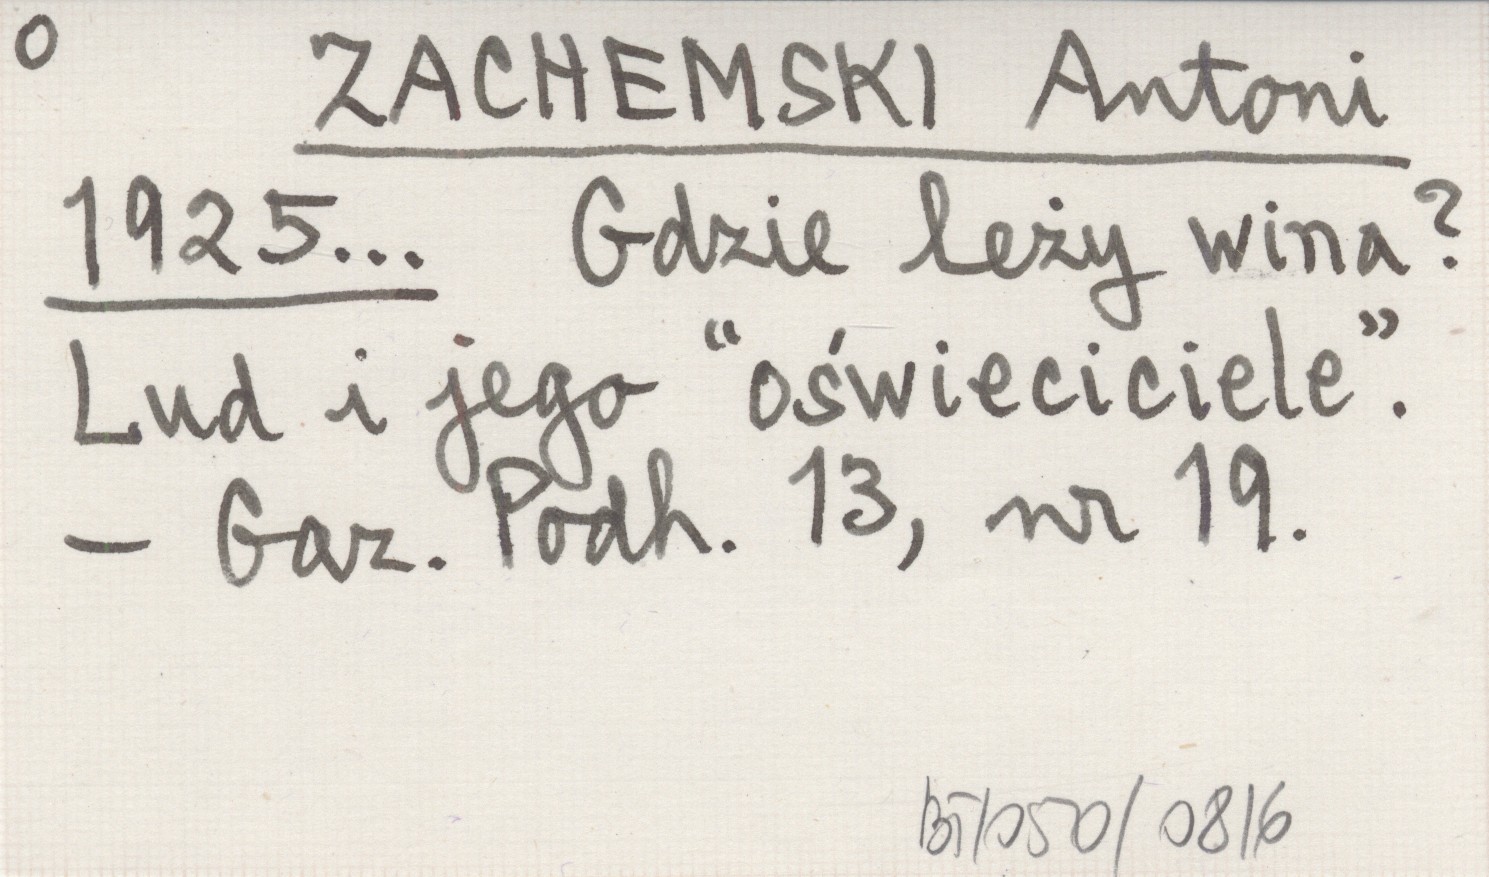 O
ZACHEMSKI Antoni
1925... Gdzie leży wina?
Lud i jego “oświeciciele”.
– Gaz. Podh. 13, nr 19.
BT/050/0816